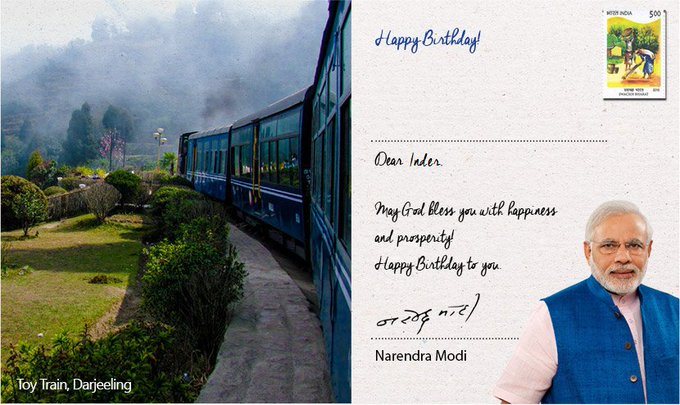 Happy Birthday!
भारत INDIA 5.00
स्वच्छ भारत
SWACHCHH BHARAT
Dear Inder.
May God bless you with happiness
and prosperity!
Happy Birthday to you.
नरेन्द्र मोदी
Narendra Modi
Toy Train, Darjeeling